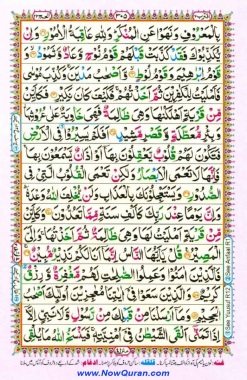 بِالْمَعْرُوْفِ وَنَهَوْا عَنِ الْمُنْكَرِ وَلِلّٰهِ عَاقِبَةُ الْاُمُوْرِ وَاِنْ
يُّكَذِّبُوْكَ فَقَدْ كَذَّبَتْ قَبْلَهُمْ قَوْمُ نُوْحٍ وَّعَادٌ وَّثَمُوْدُ
وَقَوْمُ اِبْرٰهِيْمَ وَقَوْمُ لُوْطٍ وَّاَصْحٰبُ مَدْيَنَ وَكُذِّبَ مُوْسٰى
فَاَمْلَيْتُ لِلْكٰفِرِيْنَ ثُمَّ اَخَذْتُهُمْ فَكَيْفَ كَانَ نَكِيْرِ فَكَاَيِّنْ
مِّنْ قَرْيَةٍ اَهْلَكْنٰهَا وَهِيَ ظَالِمَةٌ فَهِيَ خَاوِيَةٌ عَلٰى عُرُوْشِهَا
وَبِئْرٍ مُّعَطَّلَةٍ وَّقَصْرٍ مَّشِيْدٍ اَفَلَمْ يَسِيْرُوْا فِي الْاَرْضِ
فَتَكُوْنَ لَهُمْ قُلُوْبٌ يَّعْقِلُوْنَ بِهَا اَوْ اٰذَانٌ يَّسْمَعُوْنَ بِهَا
فَاِنَّهَا لَا تَعْمَى الْاَبْصَارُ وَلٰكِنْ تَعْمَى الْقُلُوْبُ الَّتِيْ فِي
الصُّدُوْرِ وَيَسْتَعْجِلُوْنَكَ بِالْعَذَابِ وَلَنْ يُّخْلِفَ اللّٰهُ وَعْدَهٗ
وَاِنَّ يَوْمًا عِنْدَ رَبِّكَ كَاَلْفِ سَنَةٍ مِّمَّا تَعُدُّوْنَ وَكَاَيِّنْ
مِّنْ قَرْيَةٍ اَمْلَيْتُ لَهَا وَهِيَ ظَالِمَةٌ ثُمَّ اَخَذْتُهَا وَاِلَيَّ
الْمَصِيْرُ قُلْ يٰٓاَيُّهَا النَّاسُ اِنَّمَآ اَنَا لَكُمْ نَذِيْرٌ مُّبِيْنٌ
فَالَّذِيْنَ اٰمَنُوْا وَعَمِلُوا الصّٰلِحٰتِ لَهُمْ مَّغْفِرَةٌ وَّرِزْقٌ
كَرِيْمٌ وَالَّذِيْنَ سَعَوْا فِيْٓ اٰيٰتِنَا مُعٰجِزِيْنَ اُولٰٓئِكَ اَصْحٰبُ
الْجَحِيْمِ وَمَآ اَرْسَلْنَا مِنْ قَبْلِكَ مِنْ رَّسُوْلٍ وَّلَا نَبِيٍّ اِلَّآ
اِذَا تَمَنّٰىٓ اَلْقَى الشَّيْطٰنُ فِيْٓ اُمْنِيَّتِهٖ فَيَنْسَخُ اللّٰهُ مَا يُلْقِي
www.NowQuran.com